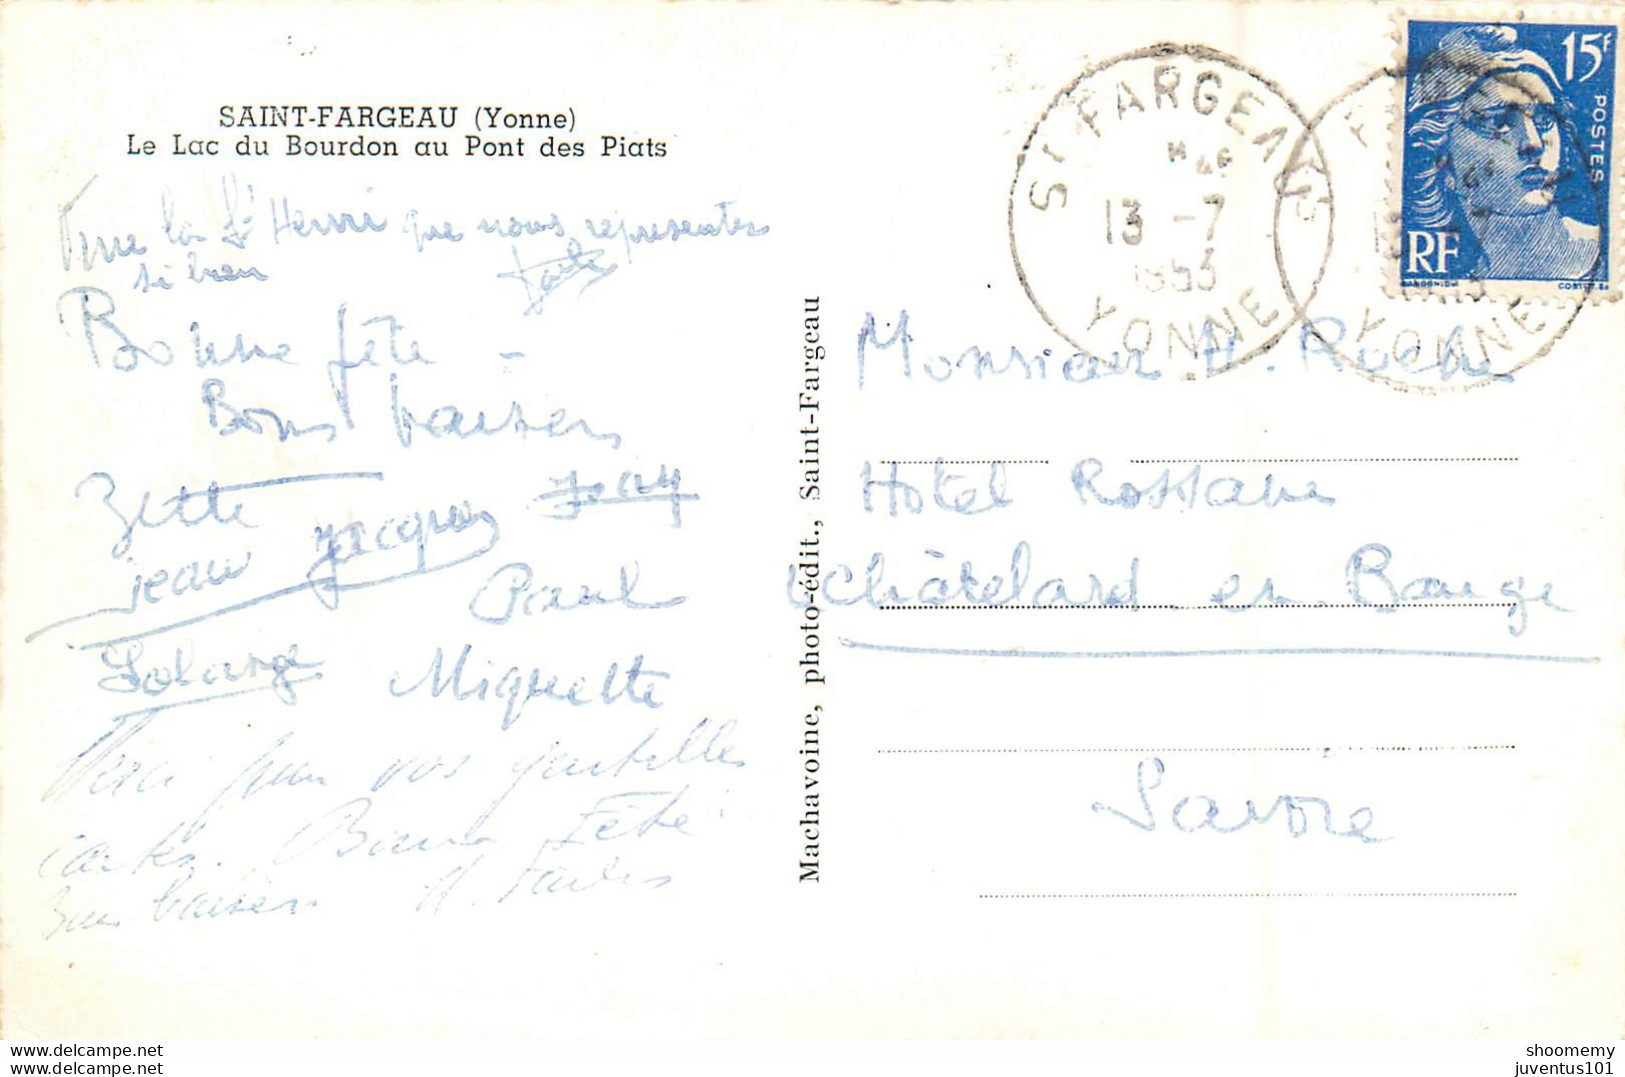 SAINT-FARGEAU (Yonne)
Le Lac du Bourdon au Pont des Piats
la St Henri que nous
si bien
Bonne fête -
Bons baisers
Zette
Jean Jacques
Paul
Solange Miquette
Merci pour vos gentilles
cartes. Bonne Fête
Bons baisers
Machavoine, photo-édit., Saint-Fargeau
ST FARGEAU
13 -7
1953
YONNE
YONNE
15F
POSTES
RF
Monsieur H. Roche
Hotel Rossane
Châtelard-en-Bauge
Savoie
shoomemy
juventus101